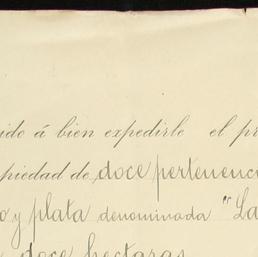 ido á bien expedirle el pr
piedad de doce pertenenc
o y plata denominada "La
doce hectaras